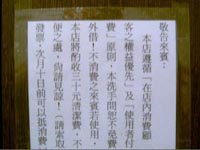 敬告來賓：
本店遵循『在店內消費顧
客之權益優先』及『使用者付
費』原則，本洗手間恕不免費
外借！不消費之來賓若使用，
本店將酌收三十元清潔費，不
便之處，尚請見諒！（請索取
發票，次月十日前可以抵消費